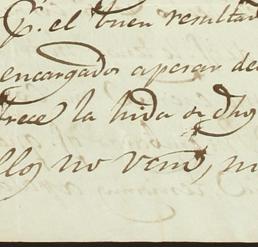 p.r el buen resultad
encargados apesar de
trece la hida de dhos
llos no vem,